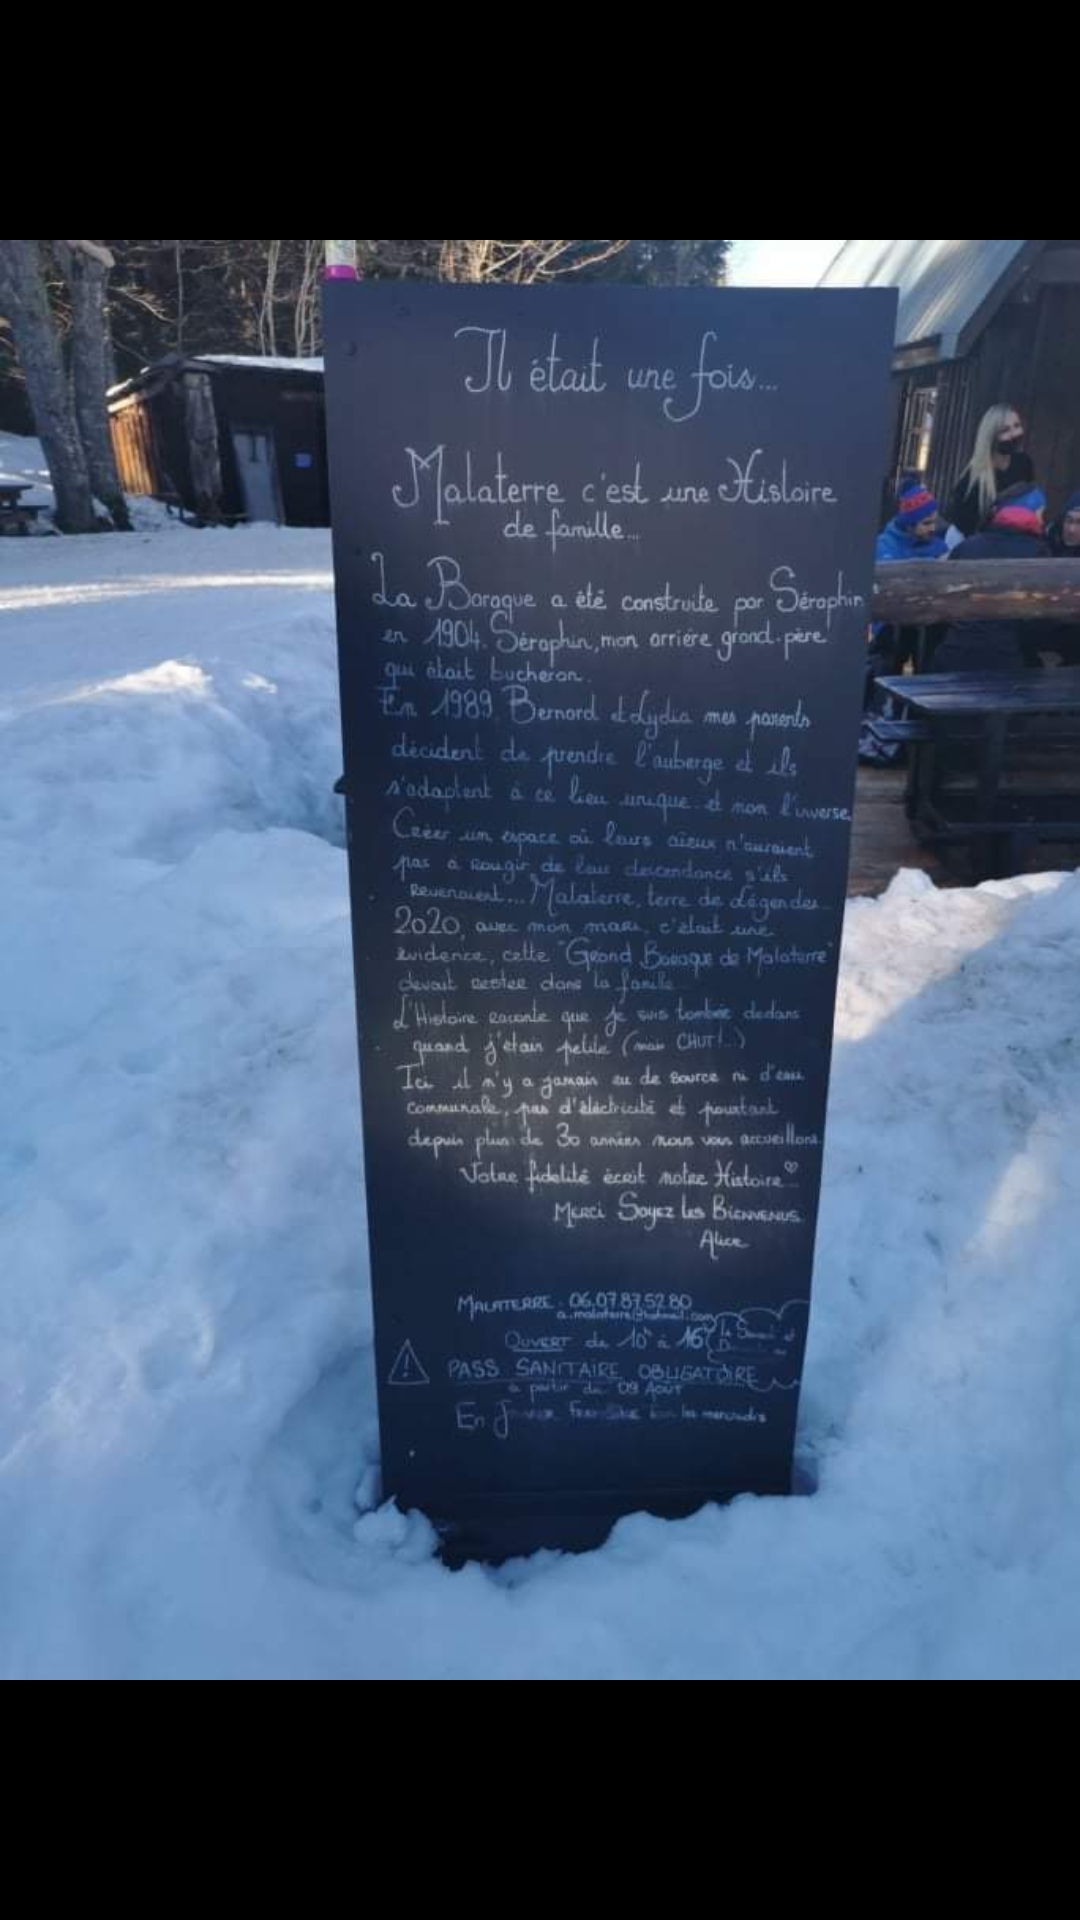 Il était une fois...
Malaterre c'est une Histoire
de famille...
La Baraque a été construite par Séraphin
en 1904. Séraphin, mon arrière grand-père
qui était bucheron.
En 1989, Bernard et Lydia mes parents
décident de prendre l'auberge et ils
s'adaptent à ce lieu unique et non l'inverse.
Créer un espace où leurs aïeux n'auraient
pas à rougir de leur descendance s'ils
revenaient... Malaterre, terre de Légendes
2020, avec mon mari, c'était une
évidence, cette "Grand Baraque de Malaterre"
devait rester dans la famille
L'Histoire raconte que je suis tombée dedans
quand j'étais petite (mais CHUT!...)
Ici il n'y a jamais eu de source ni d'eau
communale, pas d'éléctricité et pourtant
depuis plus de 30 années nous vous accueillons.
Votre fidelité écrit notre Histoire ♡
Merci Soyez les Bienvenus
Alice
MALATERRE. 06.07.87.52.80
a.malaterre@hotmail.com
OUVERT de 10h à 16h
le Samedi et
PASS SANITAIRE OBLIGATOIRE
à partir du 09 Août
En les mercredis